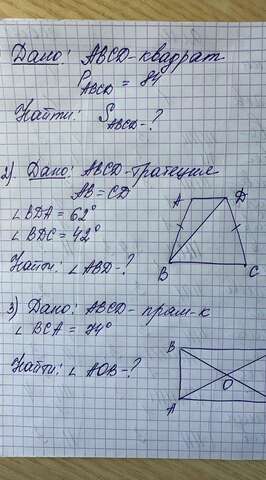 Дано: ABCD-квадрат
P ABCD = 84
Найти: S ABCD-?
2) Дано: ABCD-трапеция
AB = CD
∠BDA = 62°
∠BDC = 42°
Найти: ∠ABD-?
A D
B C
3) Дано: ABCD- прям-к
∠BCA = 74°
Найти: ∠AOB-?
B
O
A